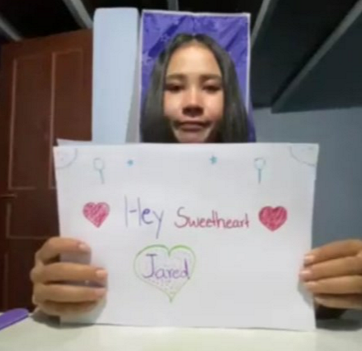 Hey Sweetheart
Jared